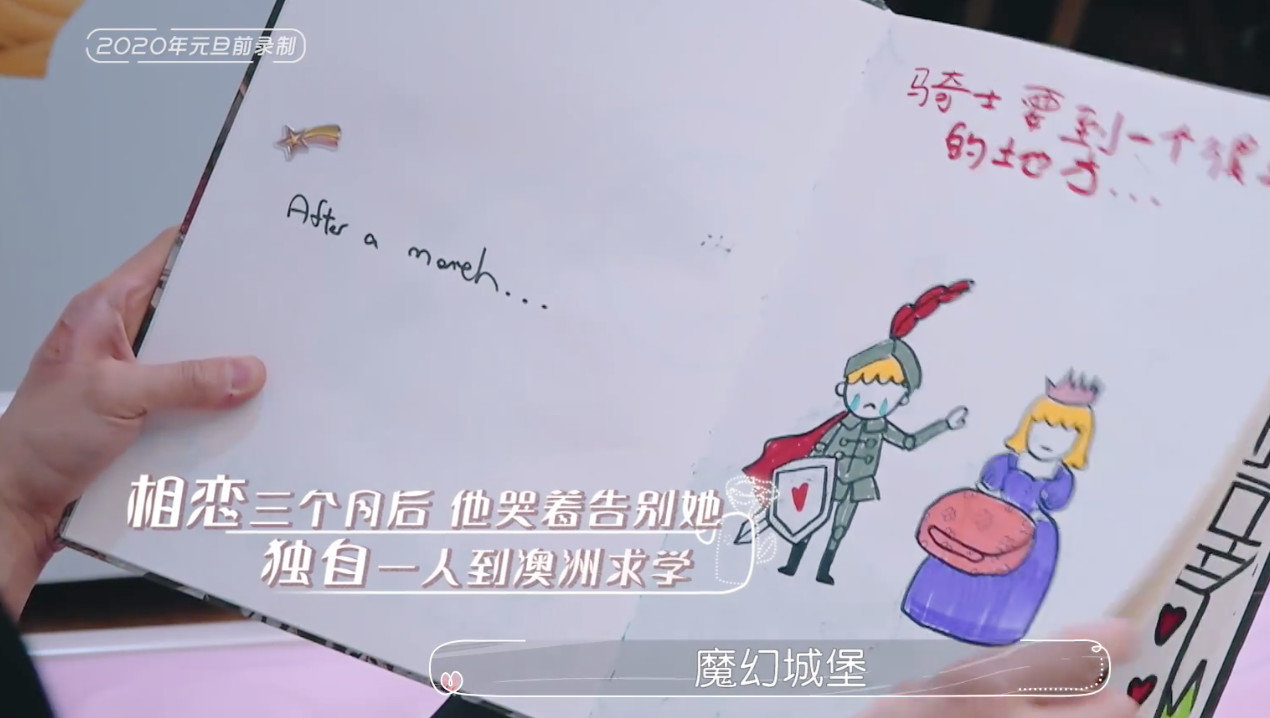 2020年元旦前录制
骑士要到一个很
的地方...
After a moreh...
相恋三个月后 他哭着告别她
独自一人到澳洲求学
魔幻城堡